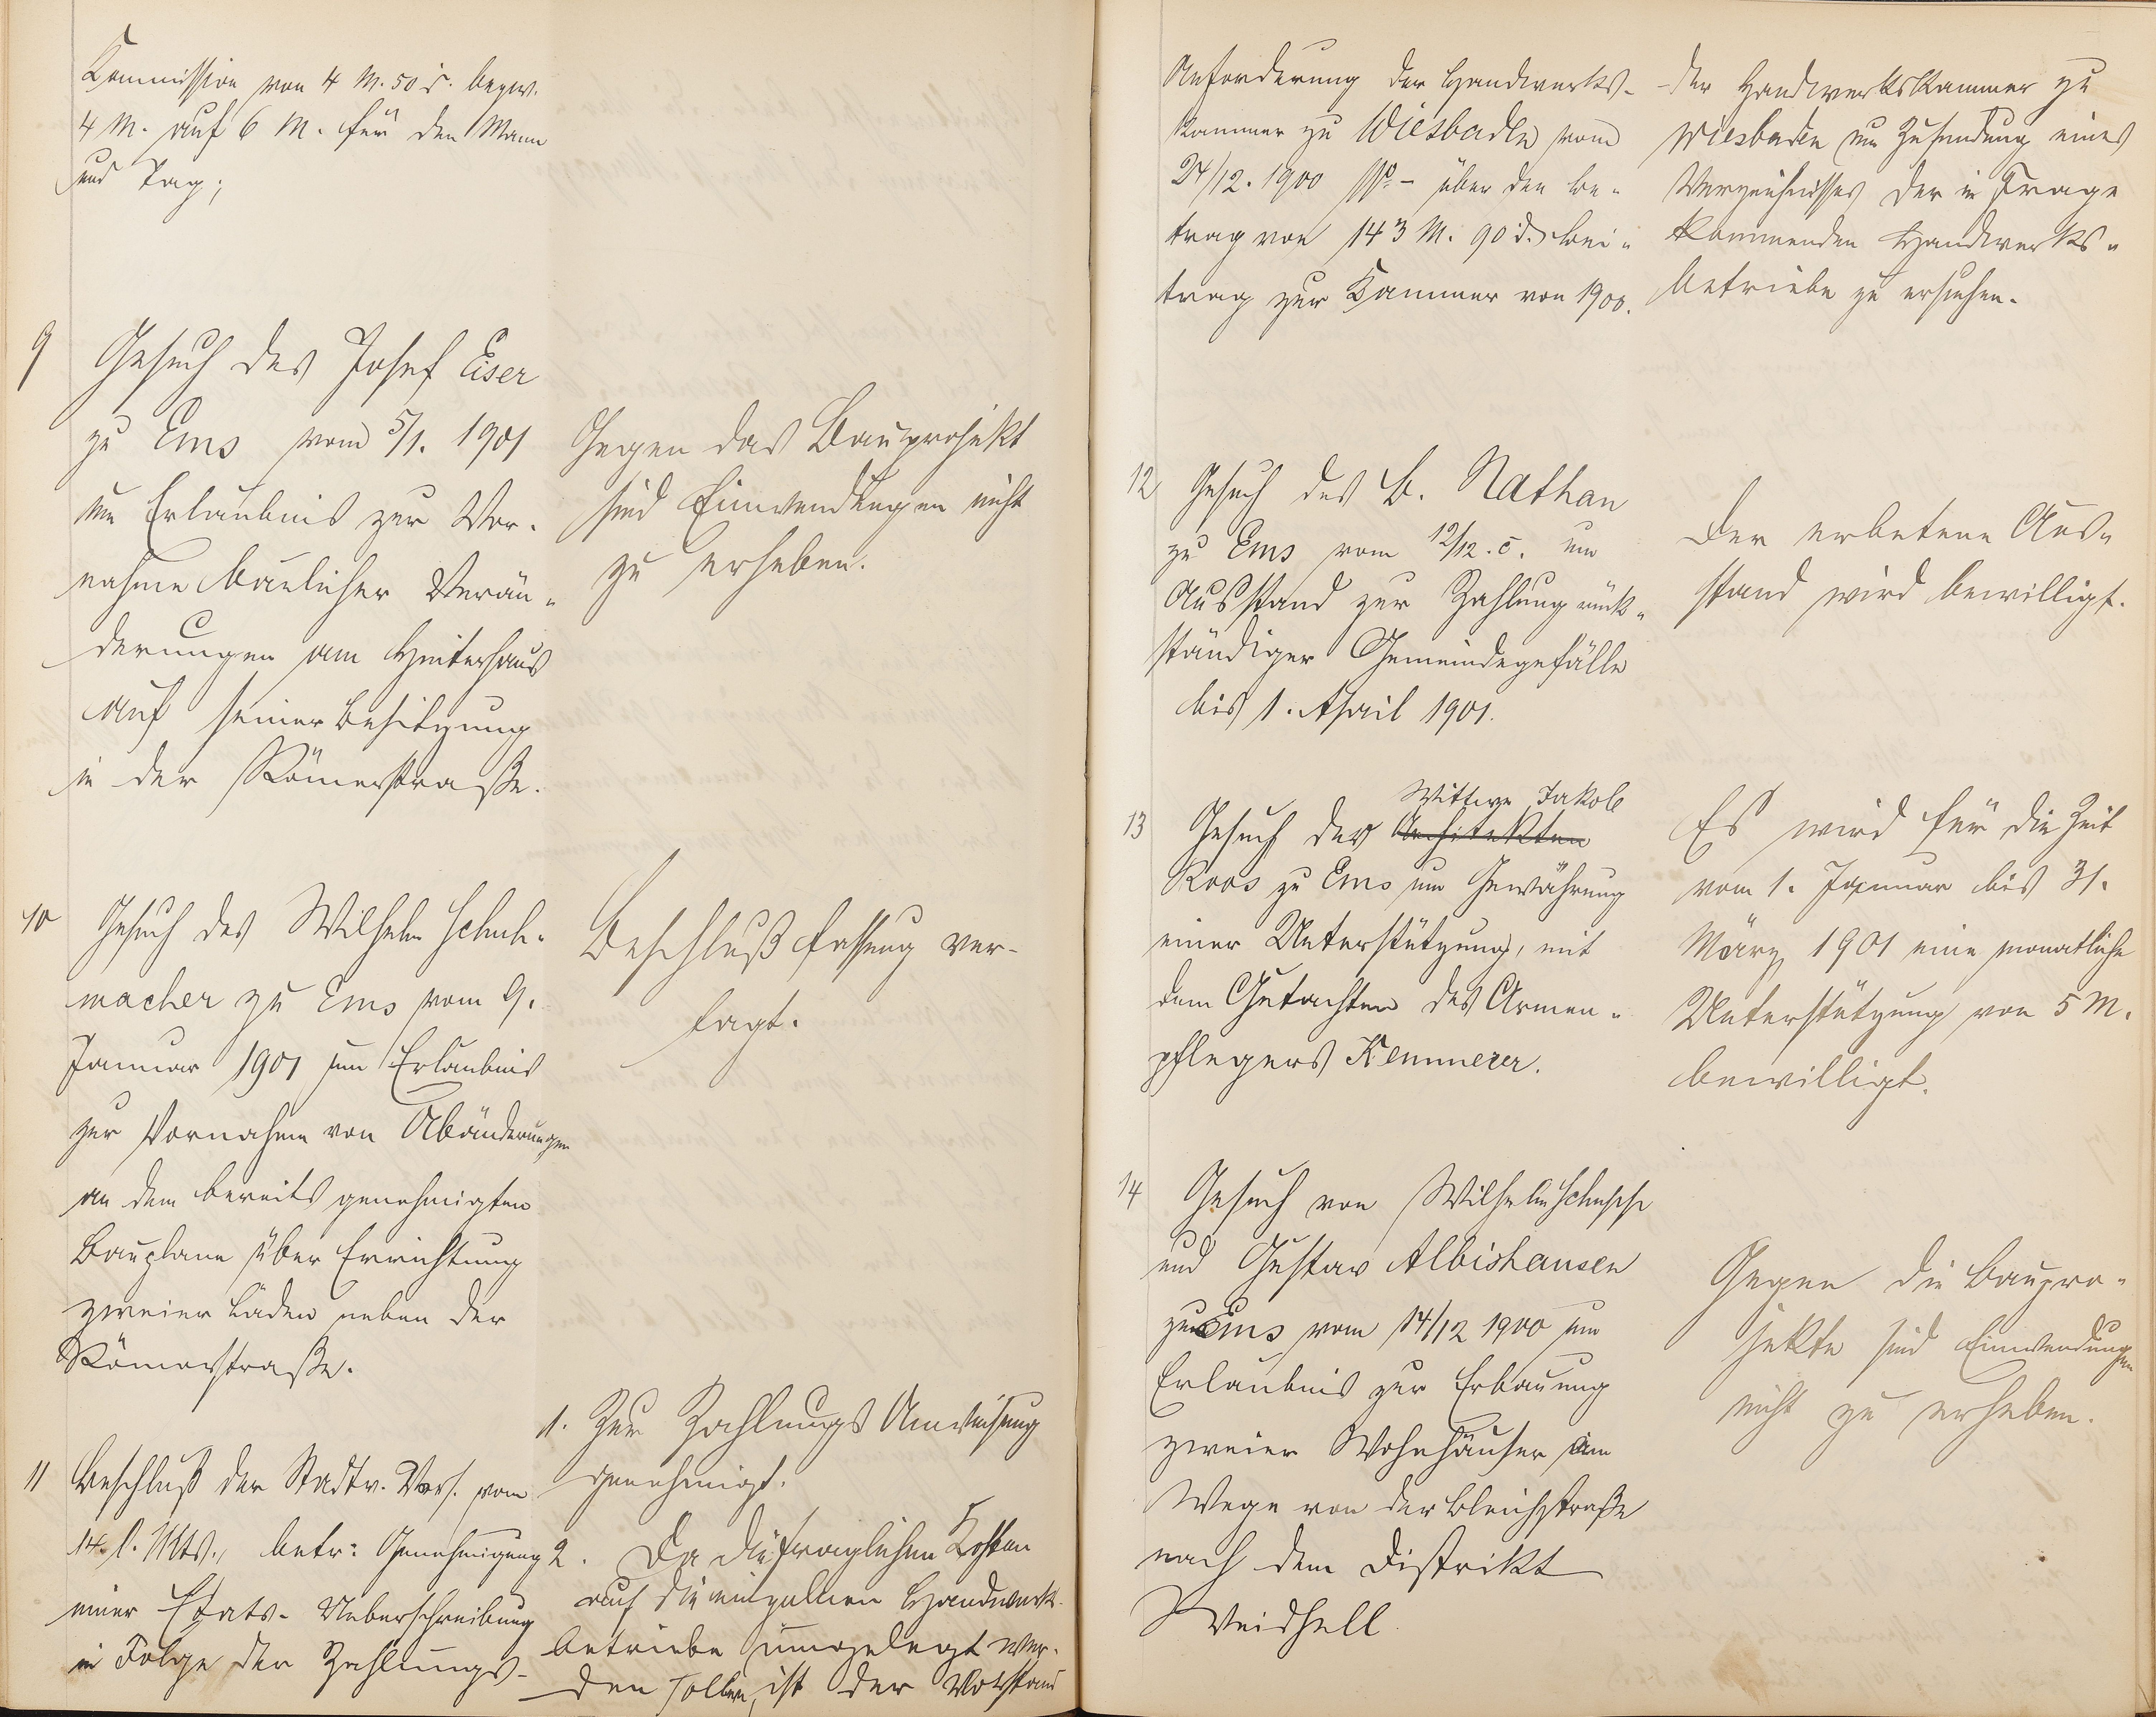 Kommission von 4 M. 50 d. bezw.
4 M. auf 6 M. für den Mann
und Tag;
9
Gesuch des Josef Eiser
zu Ems vom 5/1. 1901
um Erlaubnis zur Vor-
nahme baulicher Verän-
derungen am Hinterhaus
auf seiner Besitzung
in der Römerstraße.
Gegen das Bauprojekt
sind Einwendungen nicht
zu erheben.
10
Gesuch des Wilhelm Schuh-
macher zu Ems vom 9.
Januar 1901 um Erlaubnis
zur Vornahme von Abänderungen
an dem bereits genehmigten
Bauplane über Errichtung
zweier Läden neben der
Römerstraße.
Beschlußfassung ver-
tagt.
11
Beschluß der Stadtv. Vers. vom
14. l. Mts., betr: Genehmigung
einer Etats-Ueberschreibung
in Folge der Zahlungs-
1. Zur Zahlungs Anweisung
genehmigt.
2. Da die fraglichen Kosten
auf die einzelnen Handwerk-
betriebe umgelegt wer-
den sollen, ist der Vorstand
Anforderung der Handwerks-
kammer zu Wiesbaden vom
24/12. 1900 No - über den Be-
trag von 143 M. 90 d. Bei-
trag zur Kammer von 1900.
der Handwerkskammer zu
Wiesbaden um Zusendung eines
Verzeichnisses der in Frage
kommenden Handwerks-
betriebe zu ersuchen.
12
Gesuch des B. Nathan
zu Ems vom 12/12. c. um
Ausstand zur Zahlung rück-
ständiger Gemeindegefälle
bis 1. April 1901.
Der erbetene Aus-
stand wird bewilligt.
13
Wittwe Jakob
Gesuch der Architekten
Roos zu Ems um Gewährung
einer Unterstützung, mit
dem Gutachten des Armen-
pflegers Kemmerer.
Es wird für die Zeit
vom 1. Januar bis 31.
März 1901 eine monatliche
Unterstützung von 5 M.
bewilligt.
14
Gesuch von Wilhelm
und Gustav Albishausen
zu Ems vom 14/12 1900 um
Erlaubnis zur Erbauung
zweier Wohnhäuser am
Wege von der Bleichstraße
nach dem Distrikt
Weidhell.
Gegen die Baupro-
jekte sind Einwendungen
nicht zu erheben.